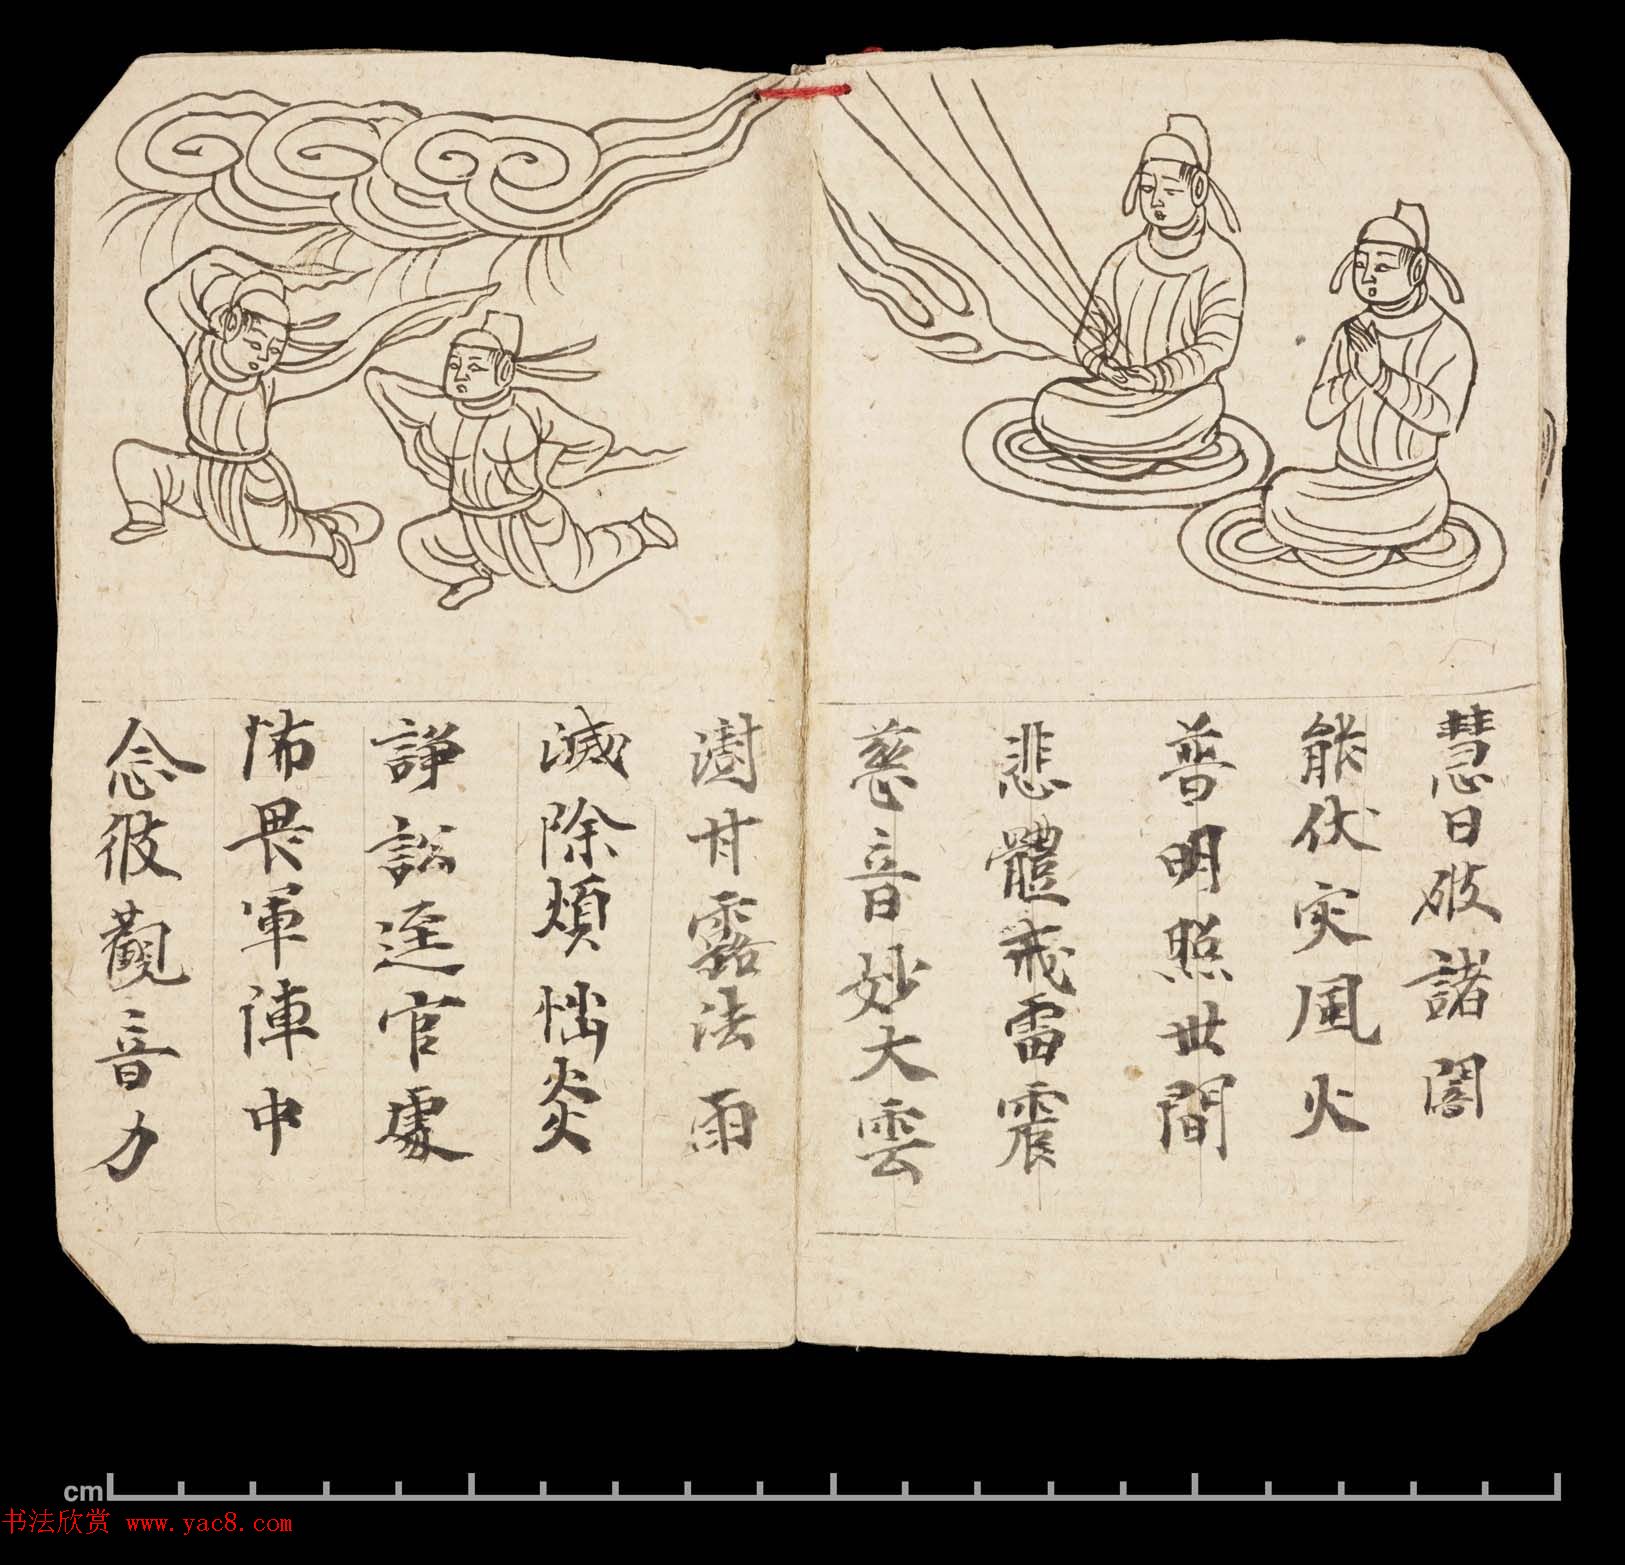 慧日破諸闇
能伏灾風火
普明照世間
悲體戒雷震
慈音妙大雲
澍甘露法雨
滅除煩惱炎
諍訟逕官處
怖畏軍陣中
念彼觀音力
cm
书法欣赏 www.yac8.com